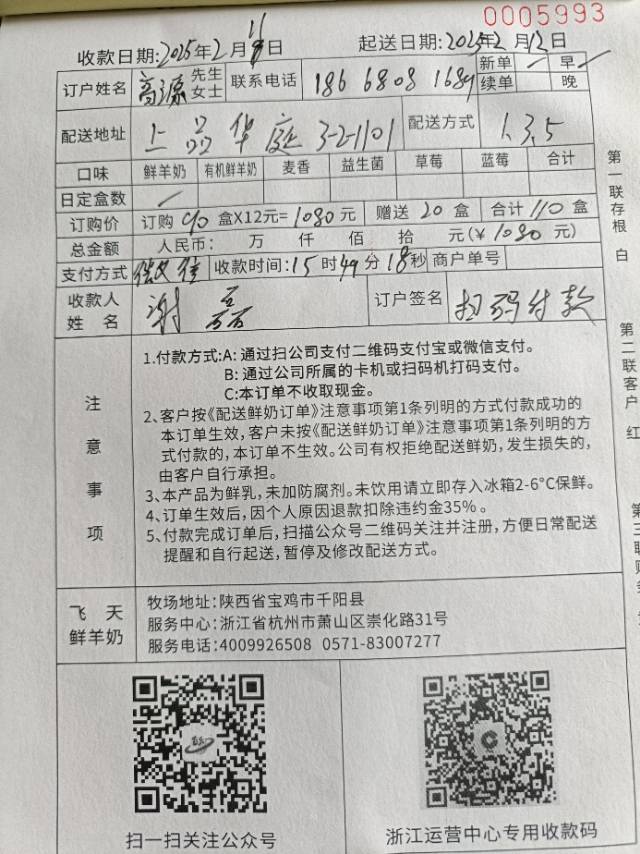 0005993
收款日期:2025年2月11日 起送日期:2025年2月12日
订户姓名 高源 先生 女士 联系电话 186 6808 1689 新单 早
续单 晚
配送地址 上品华庭 3-2-1101 配送方式 1.3.5
口味 鲜羊奶 有机鲜羊奶 麦香 益生菌 草莓 蓝莓 合计
日定盒数
订购价 订购 90 盒X12元= 1080 元 赠送 20 盒 合计 110 盒
总金额 人民币: 万 仟 佰 拾 元(¥ 1080 元)
支付方式 收款时间:15时49分18秒 商户单号
收款人姓名 谢磊 订户签名 扫码付款
注意事项
1.付款方式:A: 通过扫公司支付二维码支付宝或微信支付。
B: 通过公司所属的卡机或扫码机打码支付。
C:本订单不收取现金。
2、客户按《配送鲜奶订单》注意事项第1条列明的方式付款成功的
本订单生效,客户未按《配送鲜奶订单》注意事项第1条列明的方
式付款的,本订单不生效。公司有权拒绝配送鲜奶,发生损失的,
由客户自行承担。
3、本产品为鲜乳,未加防腐剂。未饮用请立即存入冰箱2-6°C保鲜。
4、订单生效后,因个人原因退款扣除违约金35%。
5、付款完成订单后,扫描公众号二维码关注并注册,方便日常配送
提醒和自行起送,暂停及修改配送方式。
飞天
鲜羊奶
牧场地址:陕西省宝鸡市千阳县
服务中心:浙江省杭州市萧山区崇化路31号
服务电话:4009926508 0571-83007277
扫一扫关注公众号
浙江运营中心专用收款码
第一联存根 白
第二联客户 红
第三联财务